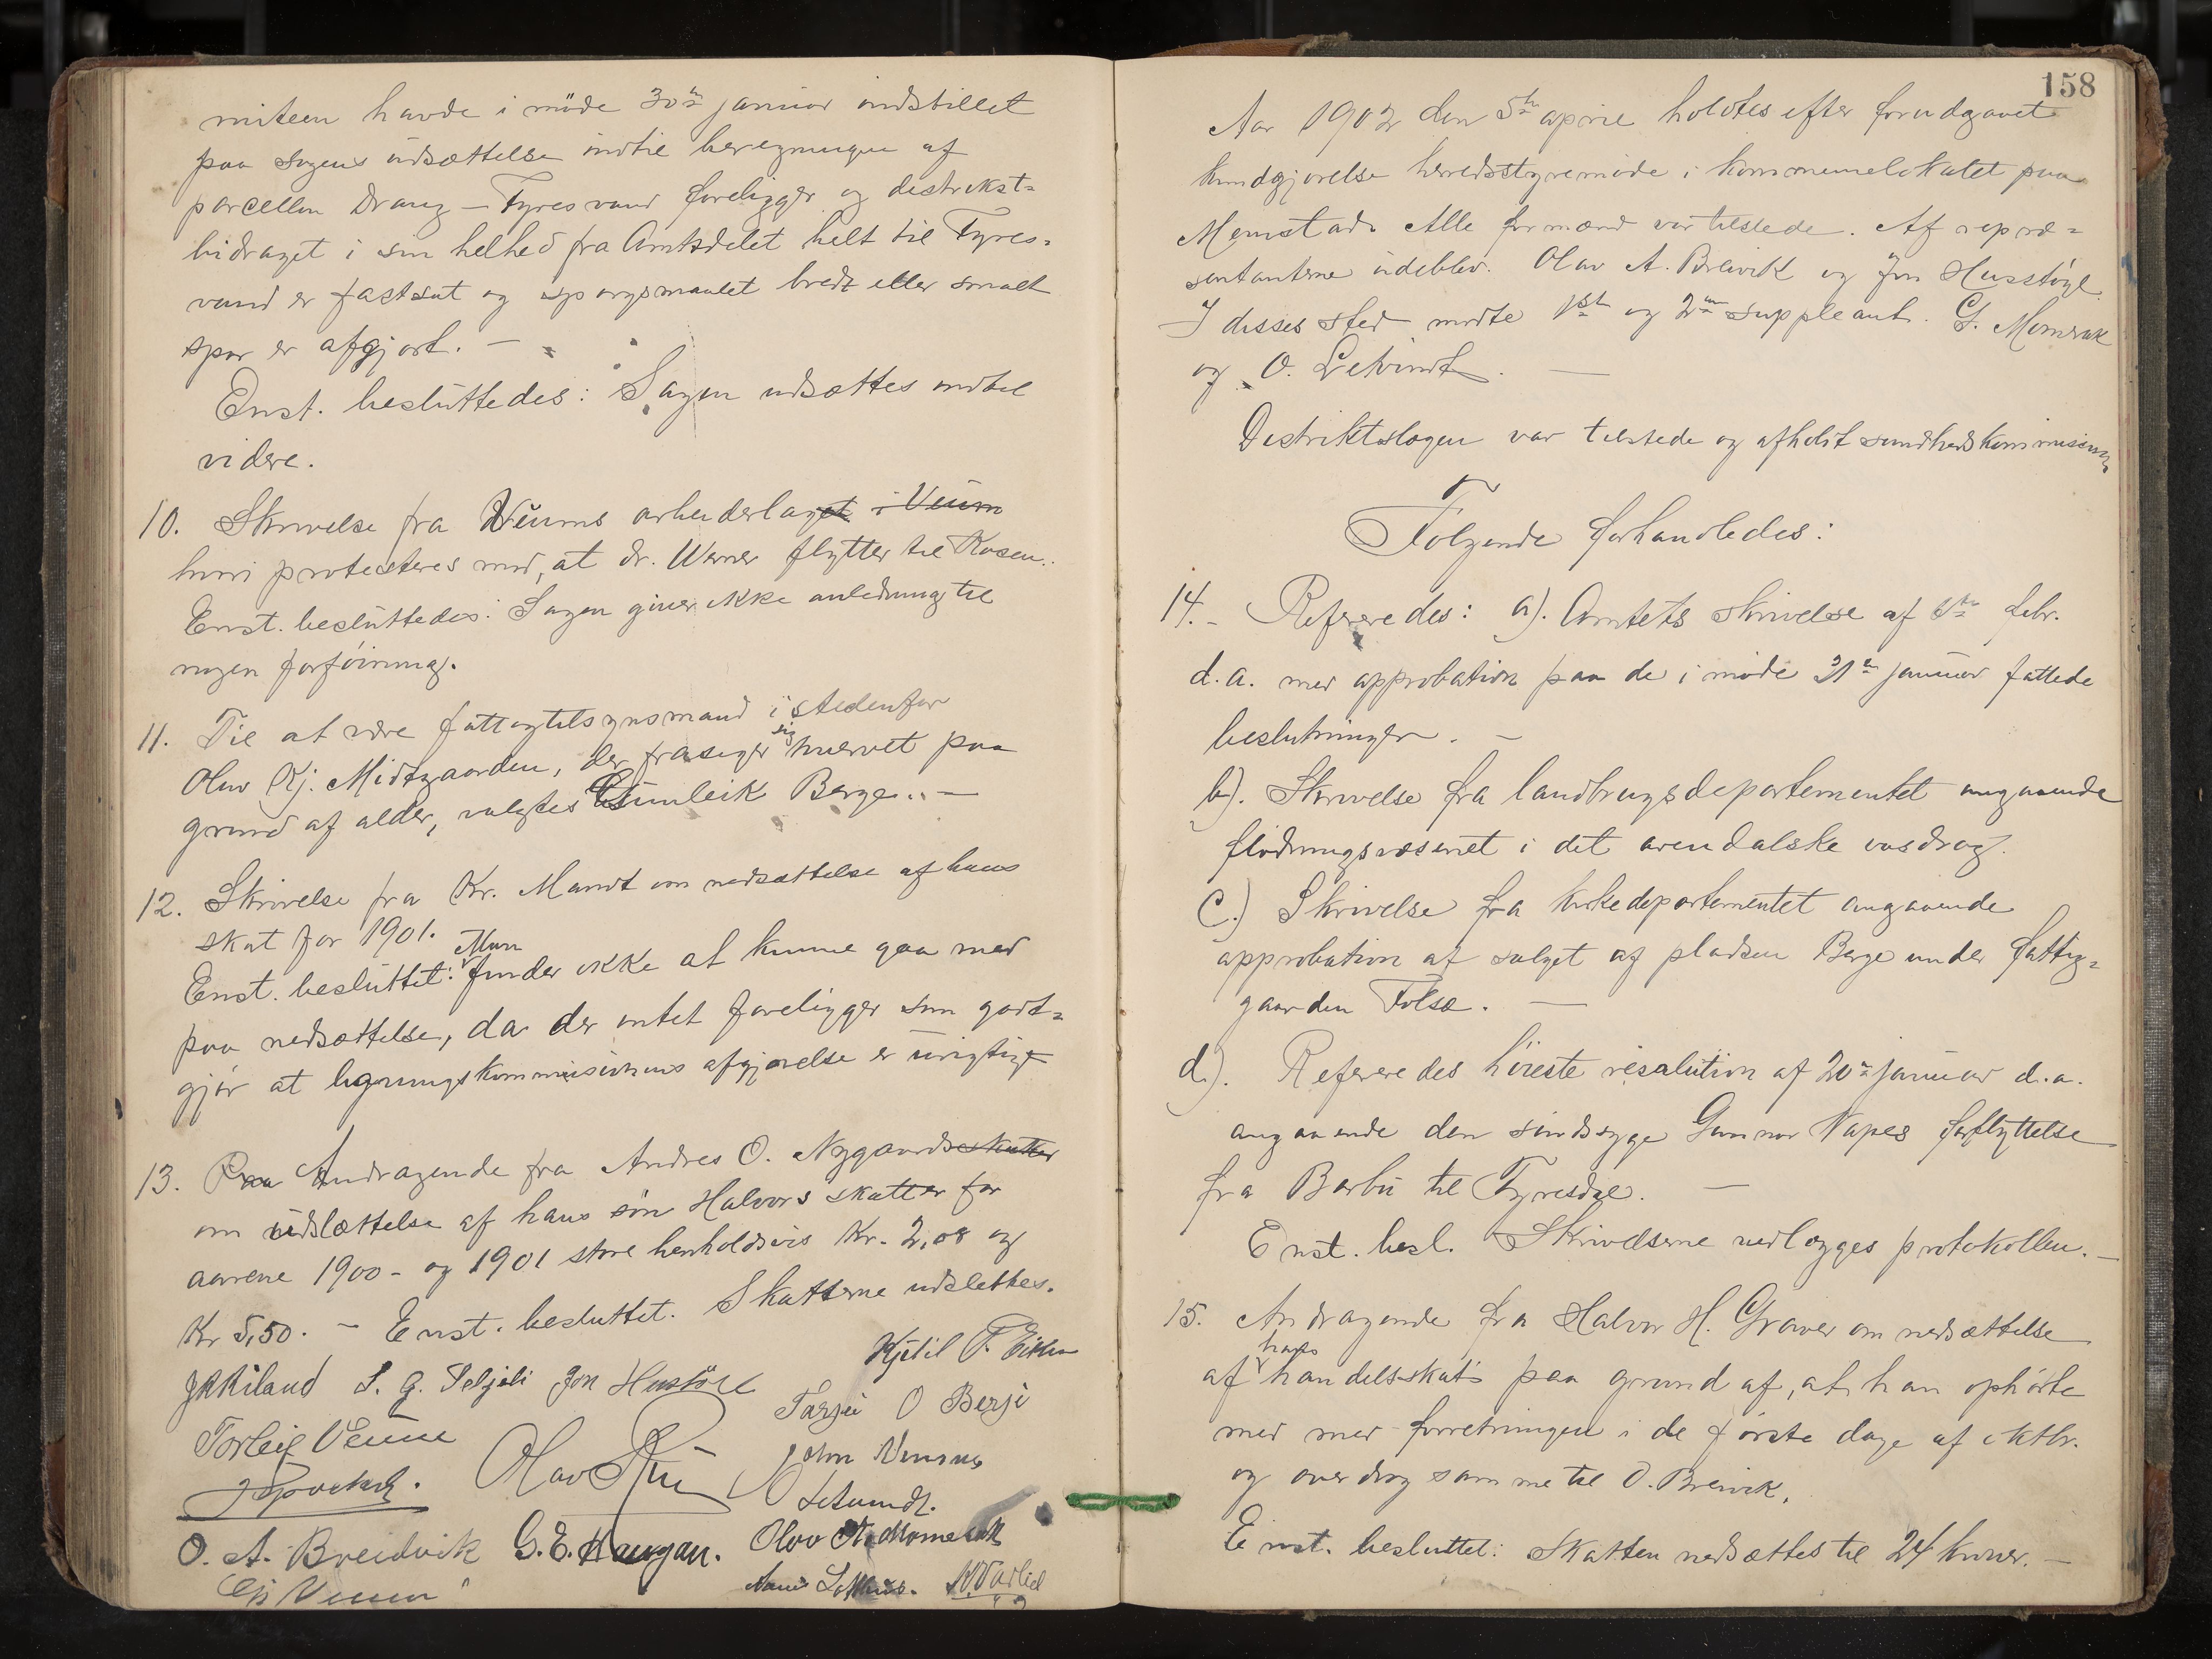 miteen havde i möde 30te januar indstillet
paa sagens udsættelse indtil beregningen af
parcellen Drang – Tyresvand foreligger og distrikst-
bidraget i sin helhed fra Amtsdelet helt til Tyres-
vand er fastsat og spørgsmaalet bredt eller smalt
spor er afgjort. –
Enst. besluttedes: Sagen udsættes indtil
videre.
10. Skrivelse fra Veums arbeiderlaget i Veum
hvori protesteres mod, at dr. Werner flytter til Rosen.
Enst. besluttedes: Sagen giver ikke anledning til
nogen forføining.
11. Til at være fattigtilsynsmand istedenfor
Olav Kj. Midtgaarden, der frasiger sig hvervet paa
grund af alder, valgtes Gunleik Berge. –
12. Skrivelse fra Kr. Mandt om nedsættelse af hans
skat for 1901.
Enst. besluttet: Man finder ikke at kunne gaa med
paa nedsættelse, da der intet foreligger som godt-
gjør at ligningskommisionens afgjørelse er urigtig
13. Andragende fra Andres O. Nygaards skatter
om udslættelse af hans søn Halvors skatter for
aarene 1900 – og 1901 store henholdsvis Kr. 2,08 og
Kr 5,50. – Enst. besluttet. Skatterne udslettes.
Kjetil T.
S. G. Seljeli Jon Hustöil
Tarjei O Berge
Torleif Veum
John
Olav
O. A. Breidvik G. E. Haugan.
Olav A. Momrak
Veum
158
Aar 1902 den 5te april holdtes efter forudgaaet
kundgjørelse herredsstyremøde i kommunelokalet paa
Momstad. Alle formænd var tilstede. Af repræ-
sentanterne udeblev. Olav A. Breivik og Jon Husstöyl.
I disses sted mødte 1ste og 2den suppleant. G. Momrak
og O. Letvindt. –
Distriktslægen var tilstede og afholdt sundhedskommission
Følgende forhandledes:
14. – Refereredes: a). Amtets skrivelse af 6te febr.
d.a. med approbation paa de i møde 31te januar fattede
beslutninger. –
b). Skrivelse fra landbrugsdepartementet angaaende
flødningsvæsenet i det arendalske vasdrag.
c.) Skrivelse fra kirkedepartementet angaaende
approbation af salget af pladsen Berge under fattig-
gaarden Folsæ. –
d.). Refereredes høieste resolution af 20de januar d.a.
angaaende den sindssyge Gunnar Napes forflyttelse
fra Barbu til Tyresdal. –
Enst. besl. Skrivelserne vedlægges protokollen. –
15. Andragende fra Halvor H. Graver om nedsættelse
af hans handelsskat paa grund af, at han ophørte
med med forretningen i de første dage af oktbr.
og overdrog samme til O. Breivik.
Enst. besluttet: Skatten nedsættes til 24 kroner. –